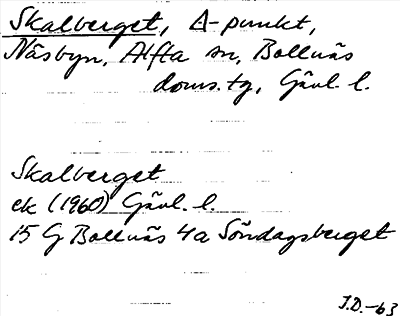 Skalberget, Δ-punkt,
Näsbyn, Alfta sn, Bollnäs
doms.tg, Gävl. l.
Skalberget
ek (1960) Gävl. l.
15 G Bollnäs 4a Söndagsberget
J.D.-63